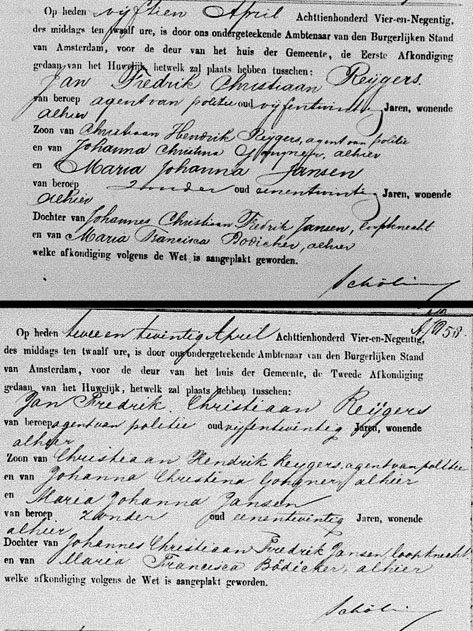 Op heden vyftien April Achttienhonderd Vier-en-Negentig,
des middags ten twaalf ure, is door ons ondergeteekende Ambtenaar van den Burgerlijken Stand
van Amsterdam, voor de deur van het huis der Gemeente, de Eerste Afkondiging
gedaan van het Huwelijk, hetwelk zal plaats hebben tusschen:
Jan Fredrik Christiaan Reijgers
van beroep agent van politie oud vyfentwintig Jaren, wonende
alhier
Zoon van Christiaan Hendrik Reijgers, agent van politie
en van Johanna Christina alhier
en Maria Johanna Jansen
van beroep zonder oud eenentwintig Jaren, wonende
alhier
Dochter van Johannes Christiaan Fredrik Jansen, loopknecht
en van Maria Francisca Bödicker, alhier
welke afkondiging volgens de Wet is aangeplakt geworden.
Op heden twee en twintig April Achttienhonderd Vier-en-Negentig,
des middags ten twaalf ure, is door ons ondergeteekende Ambtenaar van den Burgerlijken Stand
van Amsterdam, voor de deur van het huis der Gemeente, de Tweede Afkondiging
gedaan van het Huwelijk, hetwelk zal plaats hebben tusschen:
Jan Fredrik Christiaan Reijgers
van beroep agent van politie oud vyfentwintig Jaren, wonende
alhier
Zoon van Christiaan Hendrik Reijgers, agent van politie
en van Johanna Christina alhier
en Maria Johanna Jansen
van beroep zonder oud eenentwintig Jaren, wonende
alhier
Dochter van Johannes Christiaan Fredrik Jansen, loopknecht
en van Maria Francisca Bödicker, alhier
welke afkondiging volgens de Wet is aangeplakt geworden.